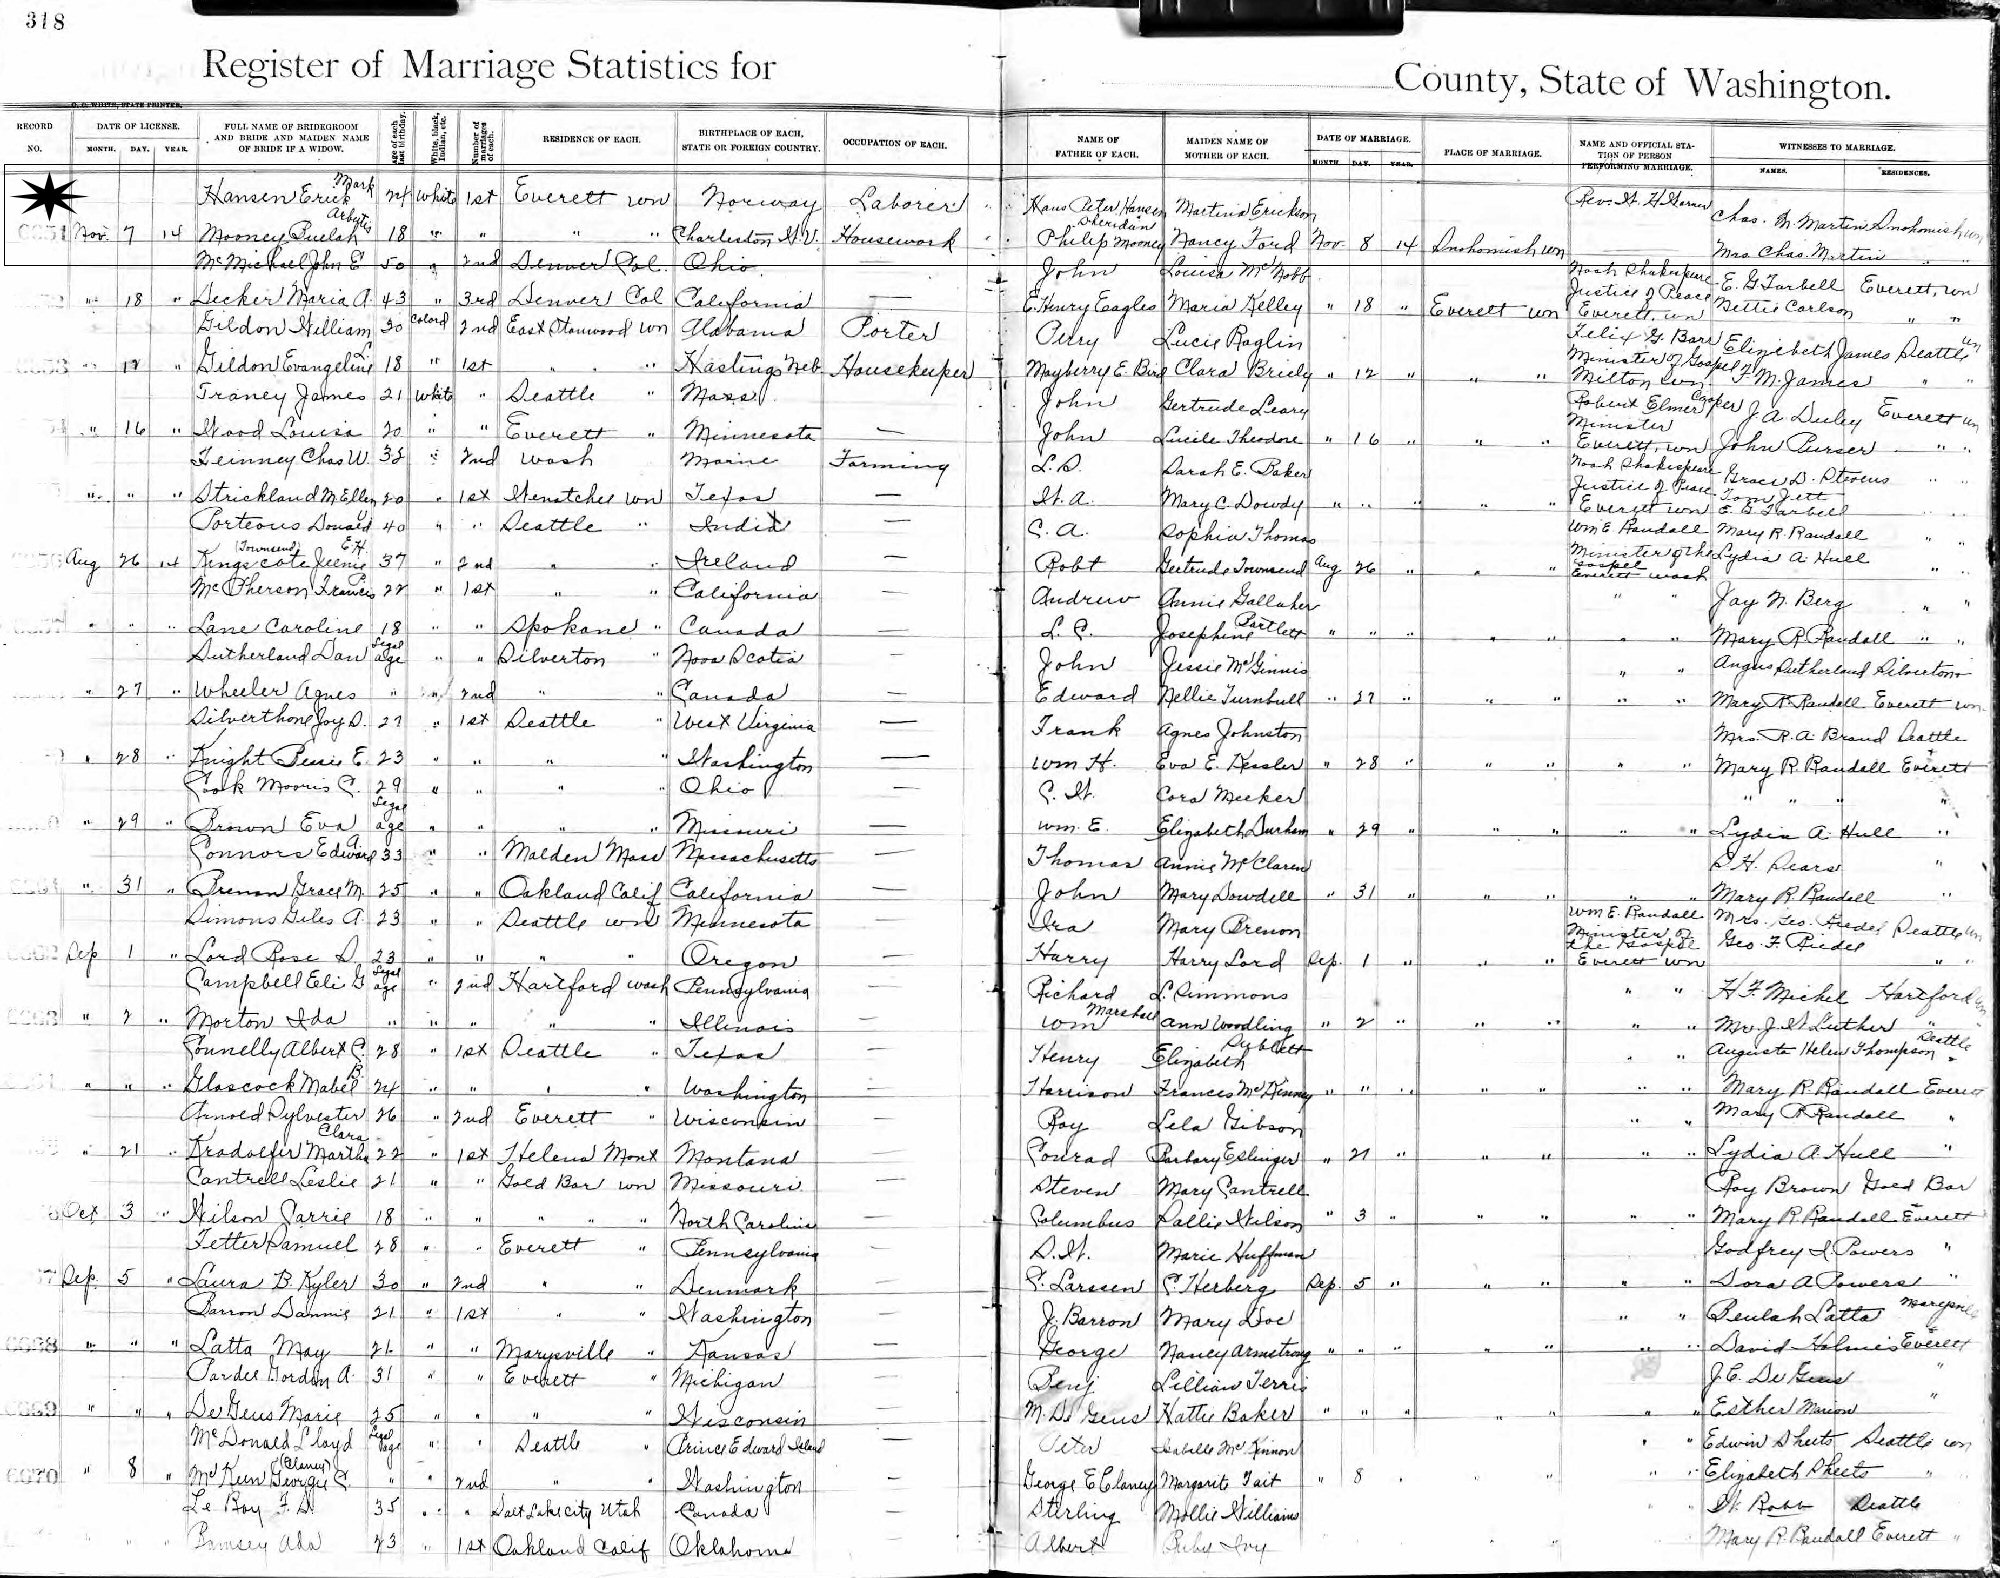 318
Register of Marriage Statistics for County, State of Washington.
O. C. WHITE, STATE PRINTER.
RECORD NO. DATE OF LICENSE. MONTH. DAY. YEAR. FULL NAME OF BRIDEGROOM AND BRIDE AND MAIDEN NAME OF BRIDE IF A WIDOW. age of each last birthday. White, black, Indian, etc. Number of marriages of each. RESIDENCE OF EACH. BIRTHPLACE OF EACH, STATE OR FOREIGN COUNTRY. OCCUPATION OF EACH. NAME OF FATHER OF EACH. MAIDEN NAME OF MOTHER OF EACH. DATE OF MARRIAGE. MONTH. DAY. YEAR. PLACE OF MARRIAGE. NAME AND OFFICIAL STATION OF PERSON PERFORMING MARRIAGE. WITNESSES TO MARRIAGE. NAMES. RESIDENCES.
Hansen Erick Mark 24 White 1st Everett Wn Norway Laborer Hans Peter Hansen Martina Erickson Chas. M. Martin Snohomish Wn
6251 Nov. 7 14 Mooney Buelah 18 " " " " Charleston W.V. Housework Philip Sheridan Mooney Nancy Ford Nov. 8 14 Snohomish Wn Mrs Chas. Martin " "
McMichael John E 50 " 2nd Denver Col. Ohio — John Louisa McNobb Noah Shakespeare E. G. Tarbell Everett, Wn
" 18 " Decker Maria A. 43 " 3rd Denver Col California — E. Henry Eagles Maria Kelley " 18 " Everett Wn Justice of Peace Everett, Wn Bettie Carlson " "
Gildon William 30 Colord 2nd East Stanwood Wn Alabama Porter Perry Lucie Raglin Felix G. Barr Elizebeth James Seattle Wn
" 12 " Gildon Evangeline L. 18 " 1st " " " Hastings Neb Housekeeper Mayberry E. Bird Clara Briely " 12 " " " Minister of Gospel Milton Wn. F. M. James " "
Traney James 21 White " Seattle " Mass. — John Gertrude Leary Robert Elmer Cooper J. A. Duley Everett Wn
" 16 " Wood Louisa 20 " " Everett " Minnesota — John Lucile Theodore " 16 " " " Minister Everett, Wn John Purser " "
Feinney Chas W. 38 " 2nd Wash Maine Farming L. S. Sarah E. Baker Noah Shakespeare Grace D. Stevens " "
" " " Strickland M. Ellen 20 " 1st Wenatchee Wn Texas — W. A. Mary C. Dowdy " " " " " Justice of Peace Everett Wn Tom Jett E. G. Tarbell
Porteous Donald 40 " " Seattle " India — C. A. Sophia Thomas Wm E. Randall Mary R. Randall " "
Aug 26 14 Kingscote Jeenie E.H. (Townsend) 37 " 2nd " " Ireland — Robt Gertrude Townsend Aug 26 " " " Minister of the Gospel Everett Wash Lydia A Hull " "
McPherson Francis 22 " 1st " " California — Andrew Annie Gallaher " " Jay N. Berg " "
" " " Lane Caroline 18 " " Spokane " Canada — L. C. Josephine Bartlett " " " " " " " Mary R Randall " "
Sutherland Dan Legal age " " Silverton " Nova Scotia — John Jessie McGinnis " " Angus Sutherland Silverton
" 27 " Wheeler Agnes " " 2nd " " Canada — Edward Nellie Turnbull " 27 " " " " " Mary R. Randall Everett Wn
Silverthone Jay D. 27 " 1st Seattle " West Virginia — Frank Agnes Johnston Mrs. R. A. Brand Seattle
" 28 " Knight Bessie E. 23 " " " " Washington — Wm H. Eva E. Kessler " 28 " " " " " Mary R Randall Everett
Cook Morris C. 29 " " " Ohio — C. W. Cora Meeker " " " "
" 29 " Brown Eva Legal age " " " " Missouri — Wm. E. Elizabeth Durham " 29 " " " " " Lydia A. Hull "
Connors Edward A. 33 " " Malden Mass Massachusetts — Thomas Annie McClaren S. H. Sears "
" 31 " Brenan Grace M. 25 " " Oakland Calif California — John Mary Dowdell " 31 " " " " " Mary R Randall "
Simons Giles A. 23 " " Seattle Wn Minnesota — Ira Mary Brenon Wm E. Randall Mrs. Geo. Riedel Seattle Wn
Sep 1 " Lord Rose D. 23 " " " " Oregon — Harry Harry Lord Sep. 1 " " " Minister of the Gospel Everett Wn Geo F. Riedel " "
Campbell Eli G Legal age " 2nd Hartford Wash Pennsylvania — Richard L. Simmons " " H F. Michel Hartford Wn
" 2 " Morton Ida " " " " " Illinois — Wm Marshall Ann Woodling " 2 " " " " " Mr. J. W Luther " "
Connelly Albert C. 28 " 1st Seattle " Texas — Henry Elizabeth Sublett " " Augusta Helen Thompson Seattle
" " " Glascock Mabel B. 24 " " " " Washington — Harrison Frances McKinney " " " " " " " Mary R. Randall Everett
Arnold Sylvester 26 " 2nd Everett " Wisconsin — Roy Lela Gibson " " Mary R Randall "
" 21 " Kradolfer Martha Clara 22 " 1st Helena Mont Montana — Conrad Barbary Eslinger " 21 " " " " " Lydia A Hull "
Cantrell Leslie 21 " " Gold Bar Wn Missouri — Steven Mary Cantrell Roy Brown Gold Bar
Oct 3 " Wilson Carrie 18 " " " " " North Carolina — Columbus Sallie Wilson " 3 " " " " " Mary R Randall Everett
Fetter Samuel 28 " " Everett " Pennsylvania — S. W. Marie Huffman Godfrey I. Powers "
Sep. 5 " Laura B. Kyler 30 " 2nd " " Denmark — C. Larssen C Herberg Sep. 5 " " " " " Dora A Powers "
Barron Dannie 21 " 1st " " Washington — J. Barron Mary Doe " " Beulah Latta Marysville
6268 " " " Latta May 21 " " Marysville " Kansas — George Nancy Armstrong " " " " " " " David Holmes Everett
Pardee Gordon A. 31 " " Everett " Michigan — Benj Lillian Ferris J. C. De Geus "
6269 " " " De Geus Marie 25 " " " " Wisconsin — M. De Geus Hattie Baker " " " " " " " Esther Marion "
McDonald Lloyd Legal age " " Seattle " Prince Edward Island — Peter Isabelle McKinnon " " Edwin Sheets Seattle Wn
6270 " 8 " McKeen Georgie C. (Clancy) " " 2nd " " Washington — George E Clancy Margarite Tait " 8 " " " " " Elizabeth Sheets "
Le Roy F. D. 35 " " Salt Lake City Utah Canada — Sterling Mollie Williams W. Robb Seattle
" " " Ramsey Ada 23 " 1st Oakland Calif Oklahoma — Albert Ruby Ivy Mary R. Randall Everett "